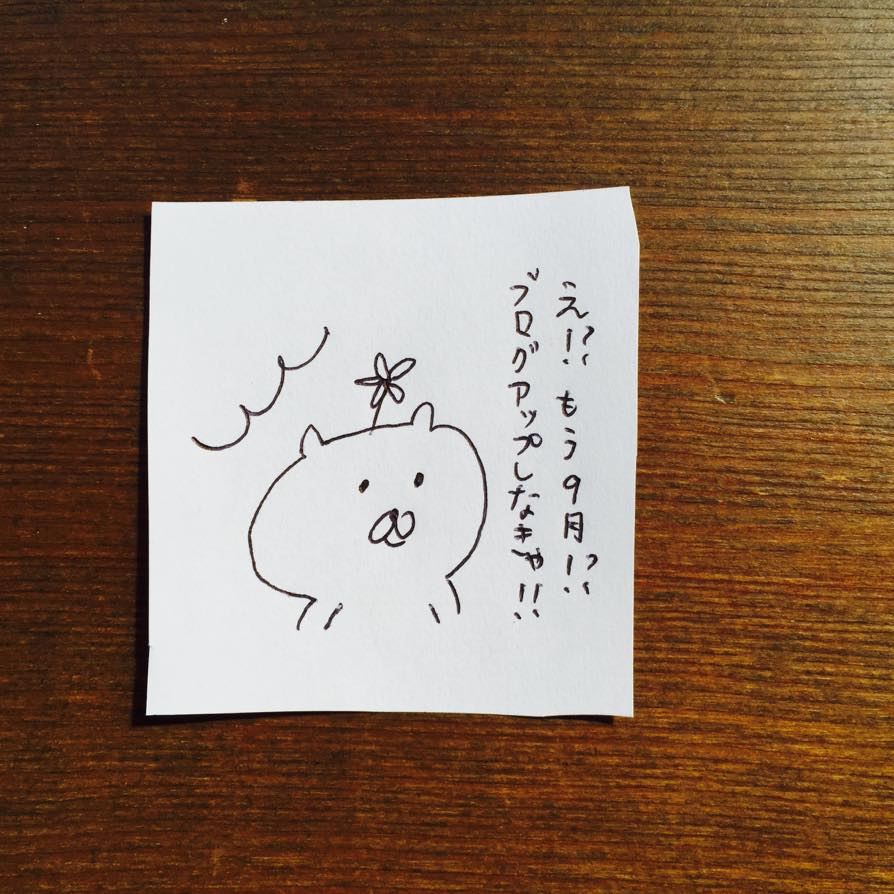 え!? もう9月!?
ブログアップしなきゃ!!